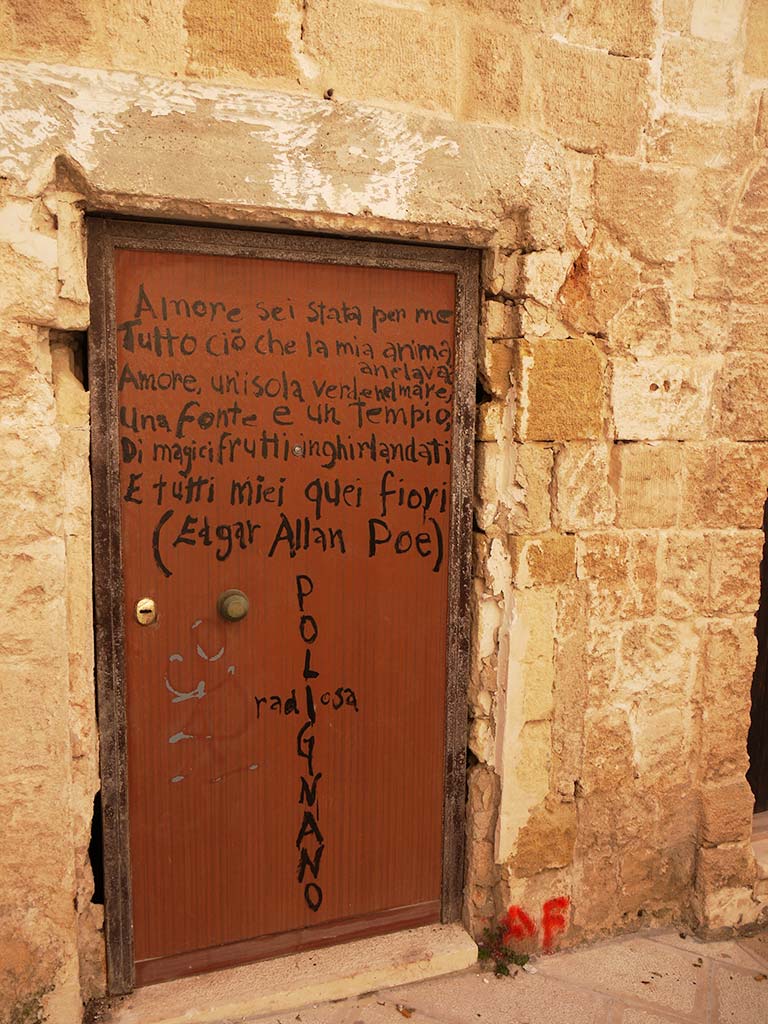 Amore sei stata per me
Tutto ciò che la mia anima
anelava
Amore, un'isola verde nel mare,
Una fonte e un Tempio,
Di magici frutti inghirlandati
E tutti miei quei fiori
(Edgar Allan Poe)
POLIGNANO
radiosa
AF